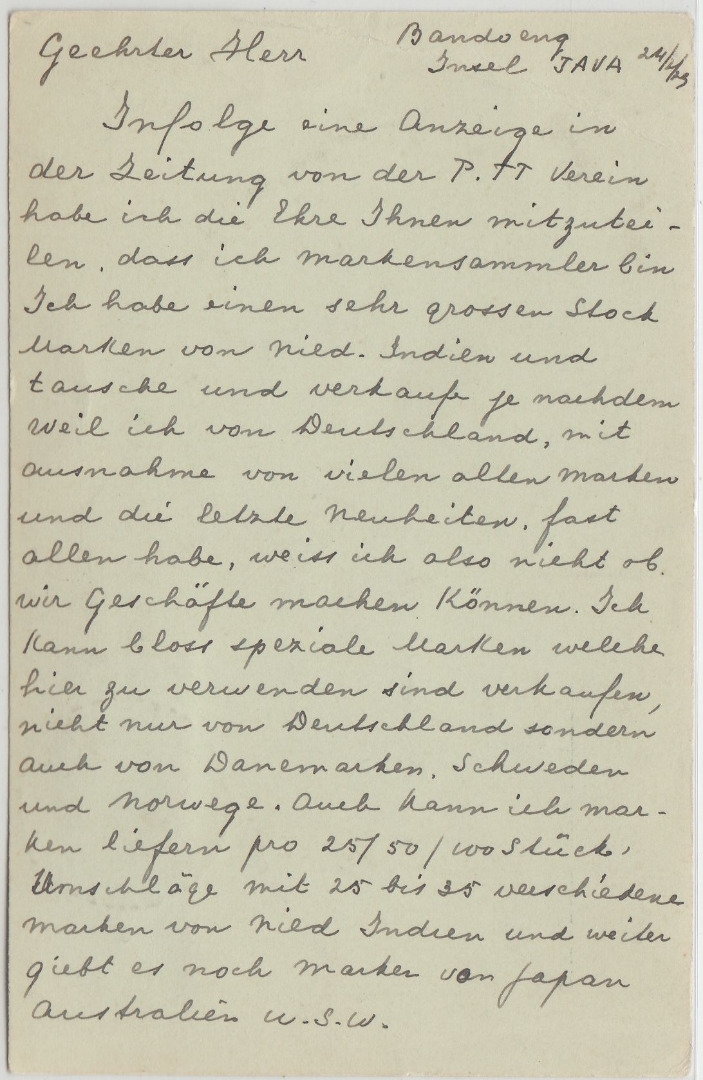 Geehrter Herr
Bandoeng
Insel JAVA
Infolge eine Anzeige in
der Zeitung von der P.TT Verein
habe ich die Ehre Ihnen mitzutei-
len, dass ich Markensammler bin
Ich habe einen sehr grossen Stock
Marken von Nied. Indien und
tausche und verkaufe je nachdem
Weil ich von Deutschland, mit
ausnahme von vielen alten Marken
und die letzte Neuheiten, fast
allen habe, weiss ich also nicht ob
wir Geschäfte machen Können. Ich
Kann bloss speziale Marken welche
hier zu verwenden sind verkaufen,
nicht nur von Deutschland sondern
auch von Danemarken, Schweden
und Norwege. Auch kann ich mar-
ken liefern pro 25/50/100 Stück,
Umschläge mit 25 bis 35 verschiedene
marken von Nied Indien und weiter
giebt es noch Marken von Japan
Australien u.s.w.